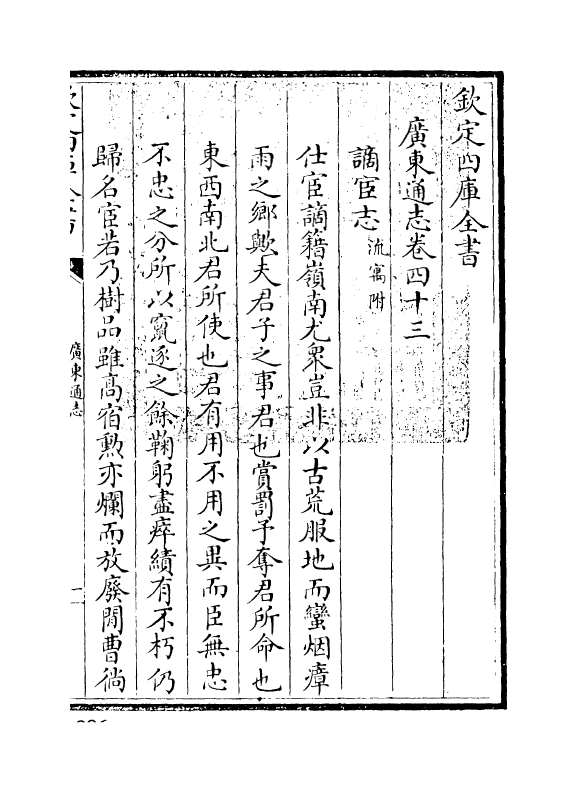 欽定四庫全書
廣東通志卷四十三
謫宦志流寓附
仕宦謫籍嶺南尤衆豈非以古荒服地而蠻烟瘴
雨之鄉歟夫君子之事君也賞罰予奪君所命也
東西南北君所使也君有用不用之異而臣無忠
不忠之分所以竄逐之餘鞠躬盡瘁績有不朽仍
歸名宦若乃樹品雖高宿勲亦爛而放廢閒曹徜
廣東通志